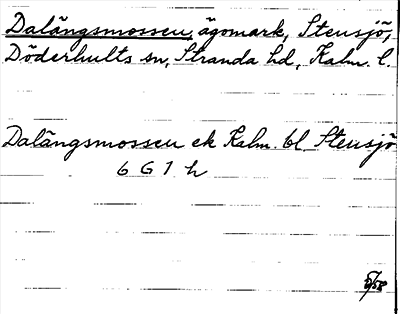 Dalängsmossen, ägomark, Stensjö,
Döderhults sn, Stranda hd, Kalm. l.
Dalängsmossen ek Kalm. bl. Stensjö
6 G 1 h